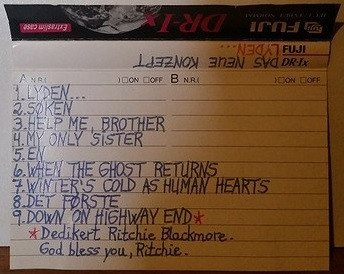 Extraslim case
DR-Ix
FUJI
LYDEN...
DAS NEUE KONZEPT
FUJI
DR-Ix
A N.R. I ON OFF B N.R. I ON OFF
1. LYDEN...
2. SØKEN
3. HELP ME, BROTHER
4. MY ONLY SISTER
5. EN
6. WHEN THE GHOST RETURNS
7. WINTER'S COLD AS HUMAN HEARTS
8. DET FØRSTE
9. DOWN ON HIGHWAY END*
*Dedikert Ritchie Blackmore.
God bless you, Ritchie.